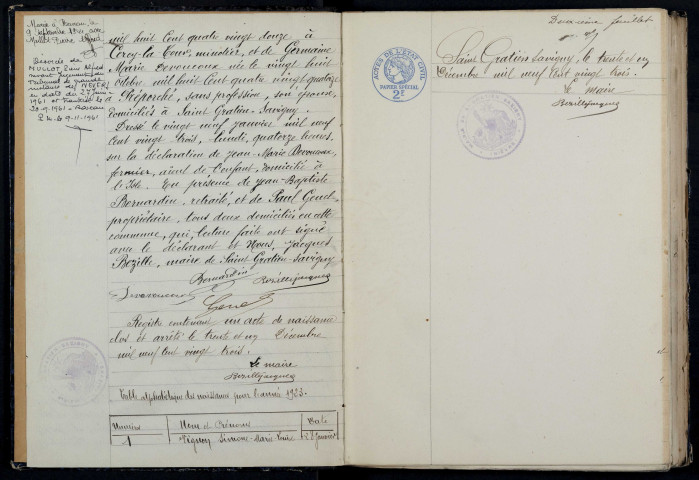 Marié à
Mullot Pierre Alfred
Divorcé de
MULLOT Pierre Alfred
suivant jugement du
Tribunal de grande
instance de NEVERS
en date du 27 juin
1961 et transcrit le
20-9-1961
Le 9-11-1961
mil huit cent quatre vingt douze à
Cercy-la-Tour, minotier, et de Germaine
Marie Devoucoux née le vingt huit
octobre mil huit cent quatre vingt quatorze
à Rémilly, sans profession, son épouse,
domiciliés à Saint Gratien-Savigny.
Dressé le vingt neuf janvier mil neuf
cent vingt trois, lundi, quatorze heures,
sur la déclaration de Jean-Marie Devoucoux,
fermier, aïeul de l'enfant, domicilié à
le Isle. En présence de Jean-Baptiste
Bernardin, retraité, et de Paul Genet
propriétaire, tous deux domiciliés en cette
commune, qui, lecture faite ont signé
avec le déclarant et Nous, Jacques
Bezille, maire de Saint Gratien-Savigny
Bernardin Bezille Jacques
Devoucoux
Genet
Registre contenant un acte de naissance
clos et arrêté le trente et un Décembre
mil neuf cent vingt trois.
Le maire
Bezille Jacques
Table alphabétique des naissances pour l'année 1923.
Numéros Nom et Prénoms Date
1 Simone-Marie 28 Janvier
ACTES DE L'ETAT CIVIL
PAPIER SPECIAL
2F
Deuxième feuillet
Saint Gratien Savigny, le trente et un
Décembre mil neuf cent vingt trois.
Le Maire
Bezille Jacques